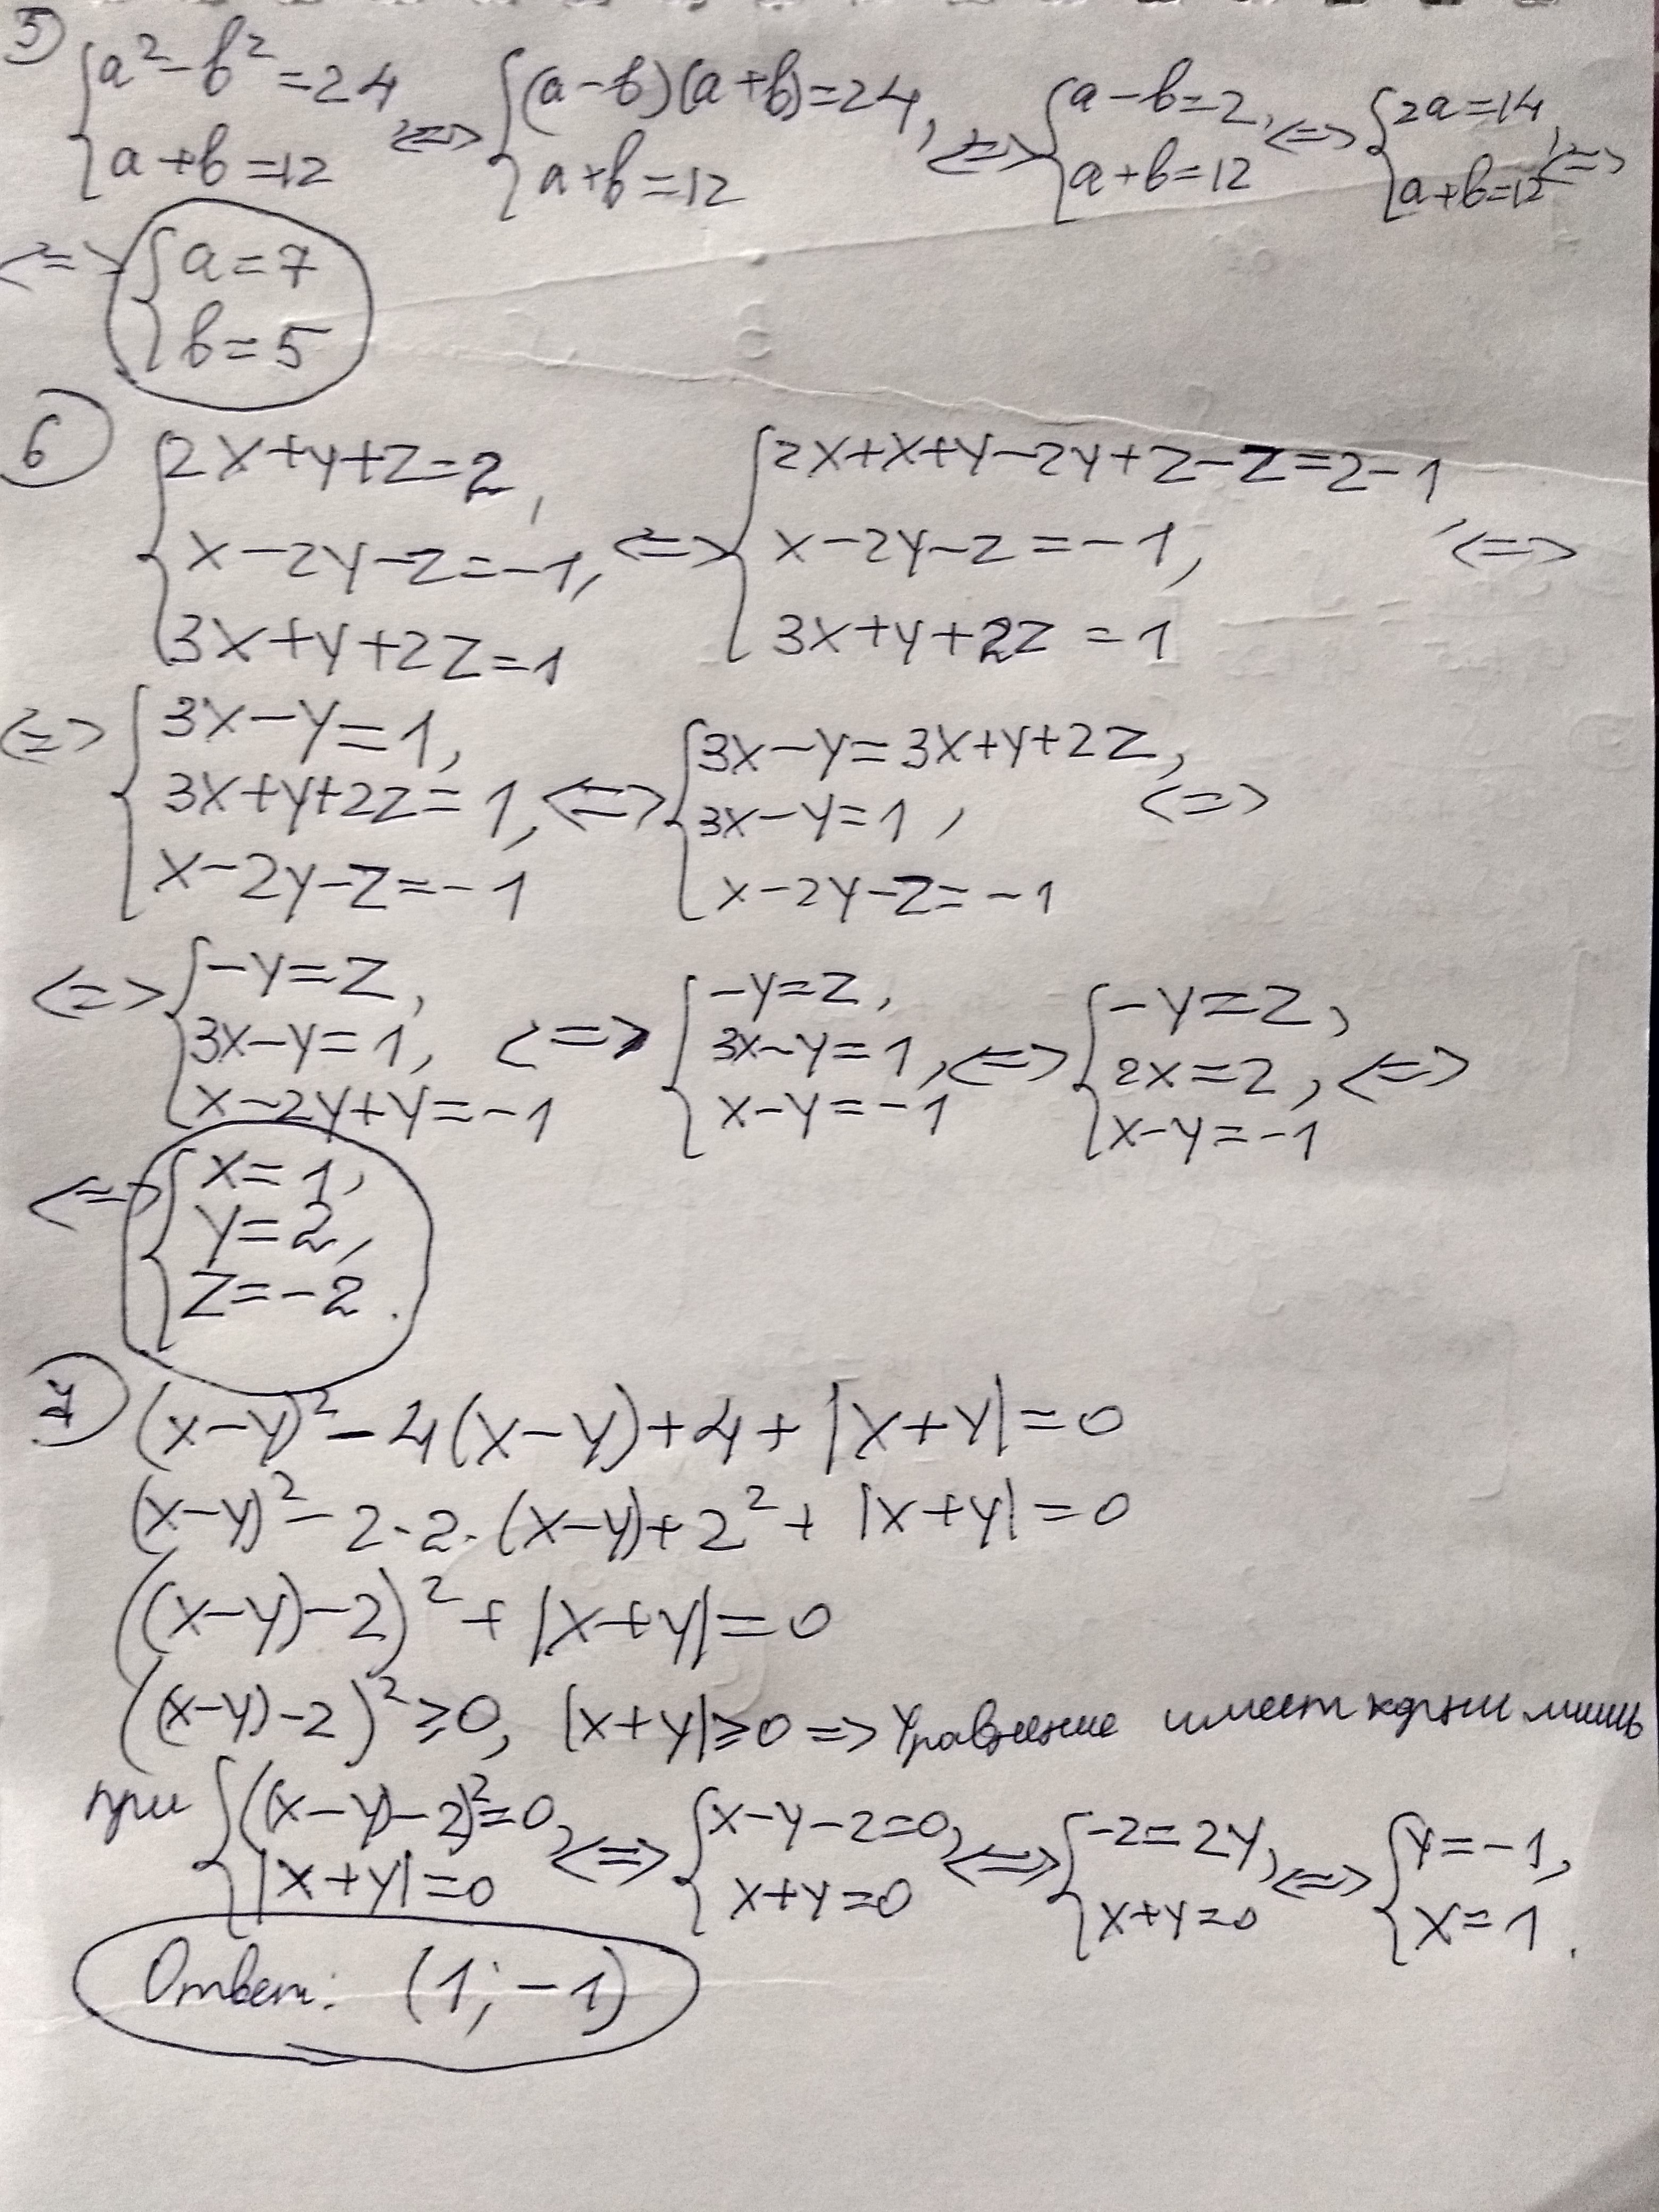 5) { a² - b² = 24, a + b = 12 <=> { (a - b)(a + b) = 24, a + b = 12 <=> { a - b = 2, a + b = 12 <=> { 2a = 14, a + b = 12 <=>
<=> { a = 7 b = 5
6 { 2x + y + z = 2, x - 2y - z = -1, 3x + y + 2z = 1 <=> { 2x + x + y - 2y + z - z = 2 - 1, x - 2y - z = -1, 3x + y + 2z = 1 <=>
<=> { 3x - y = 1, 3x + y + 2z = 1, x - 2y - z = -1 <=> { 3x - y = 3x + y + 2z, 3x - y = 1, x - 2y - z = -1 <=>
<=> { -y = z, 3x - y = 1, x - 2y + y = -1 <=> { -y = z, 3x - y = 1, x - y = -1 <=> { -y = z, 2x = 2, x - y = -1 <=>
<=> { x = 1, y = 2, z = -2.
7) (x - y)² - 4(x - y) + 4 + |x + y| = 0
(x - y)² - 2·2·(x - y) + 2² + |x + y| = 0
((x - y) - 2)² + |x + y| = 0
((x - y) - 2)² ≥ 0, |x + y| ≥ 0 => Уравнение имеет корни лишь
при { ((x - y) - 2)² = 0, |x + y| = 0 <=> { x - y - 2 = 0, x + y = 0 <=> { -2 = 2y, x + y = 0 <=> { y = -1, x = 1.
Ответ: (1; -1)